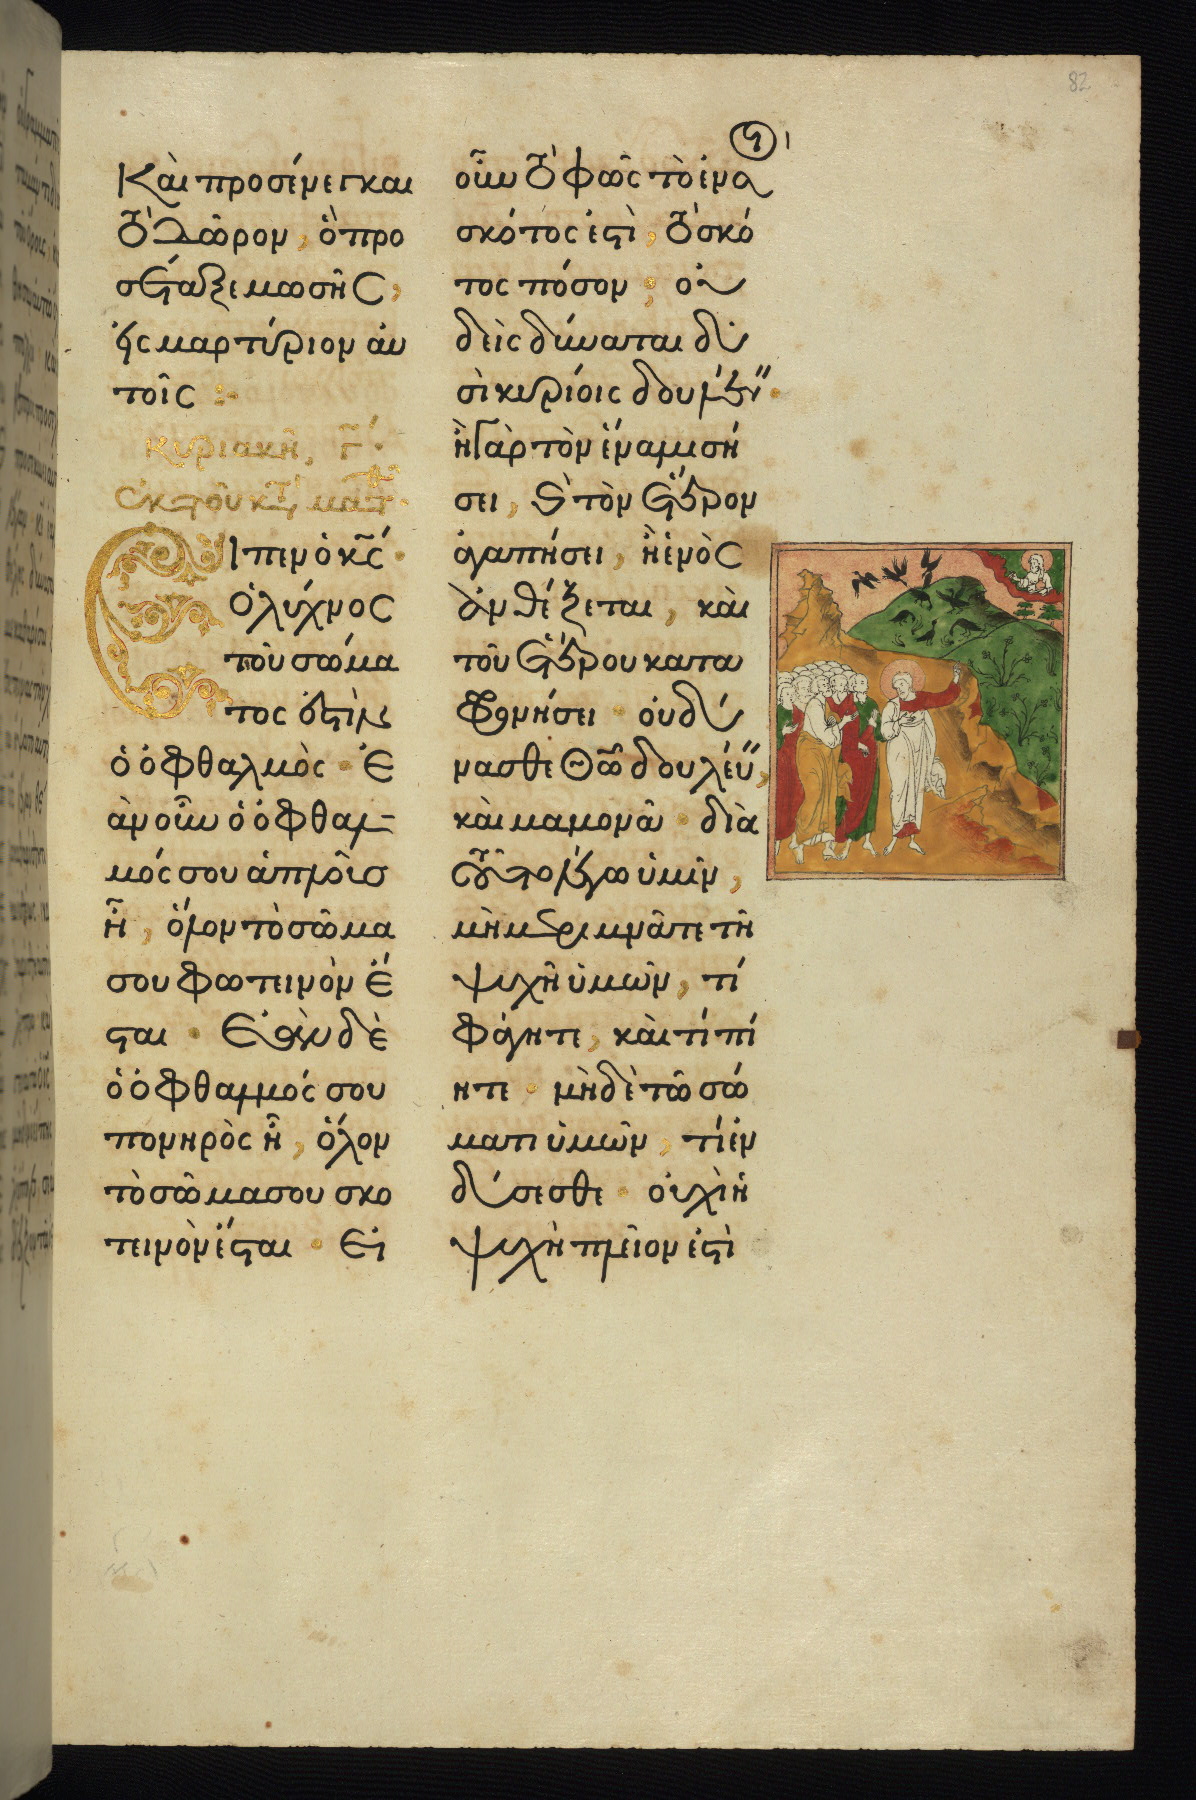 82
Καὶ προσένεγκαι
τὸ δῶρον, ὃ προ
σέταξε μωσῆς,
εἰς μαρτύριον αὐ
τοῖς :·
κυριακῆ, γ΄.
Ἐκ τοῦ κτ ματ.
Εἶπεν ὁ κς·
Ὁ λύχνος
τοῦ σώμα
τος ἐστὶν
ὁ ὀφθαλμὸς· ἐ
ὰν οὖν ὁ ὀφθαλ
μός σου ἁπλοῦς
ἦ, ὅλον τὸ σῶμα
σου φωτεινὸν ἔ
σται· Ἐὰν δὲ
ὁ ὀφθαλμός σου
πονηρὸς ἦ, ὅλον
τὸ σῶμα σου σκο
τεινὸν ἔσται· Εἰ
οὖν τὸ φῶς τὸ ἐν σοὶ
σκότος ἐστὶ, τὸ σκό
τος πόσον; οὐ
δεὶς δύναται δυ
σὶ κυρίοις δουλεύειν·
ἢ γὰρ τὸν ἕνα μισή
σει, καὶ τὸν ἕτερον
ἀγαπήσει, ἢ ἑνὸς
ἀνθέξεται, καὶ
τοῦ ἑτέρου κατα
φρονήσει· οὐ δύ
νασθε Θῶ δουλεύειν,
καὶ μαμονᾶ· διὰ
τοῦτο λέγω ὑμῖν,
μὴ μεριμνᾶτε τῆ
ψυχῆ ὑμῶν, τί
φάγητε, καὶ τί πί
ητε· μηδὲ τῶ σώ
ματι ὑμῶν, τί ἐν
δύσεσθε· οὐχὶ ἡ
ψυχὴ πλεῖον ἐστὶ